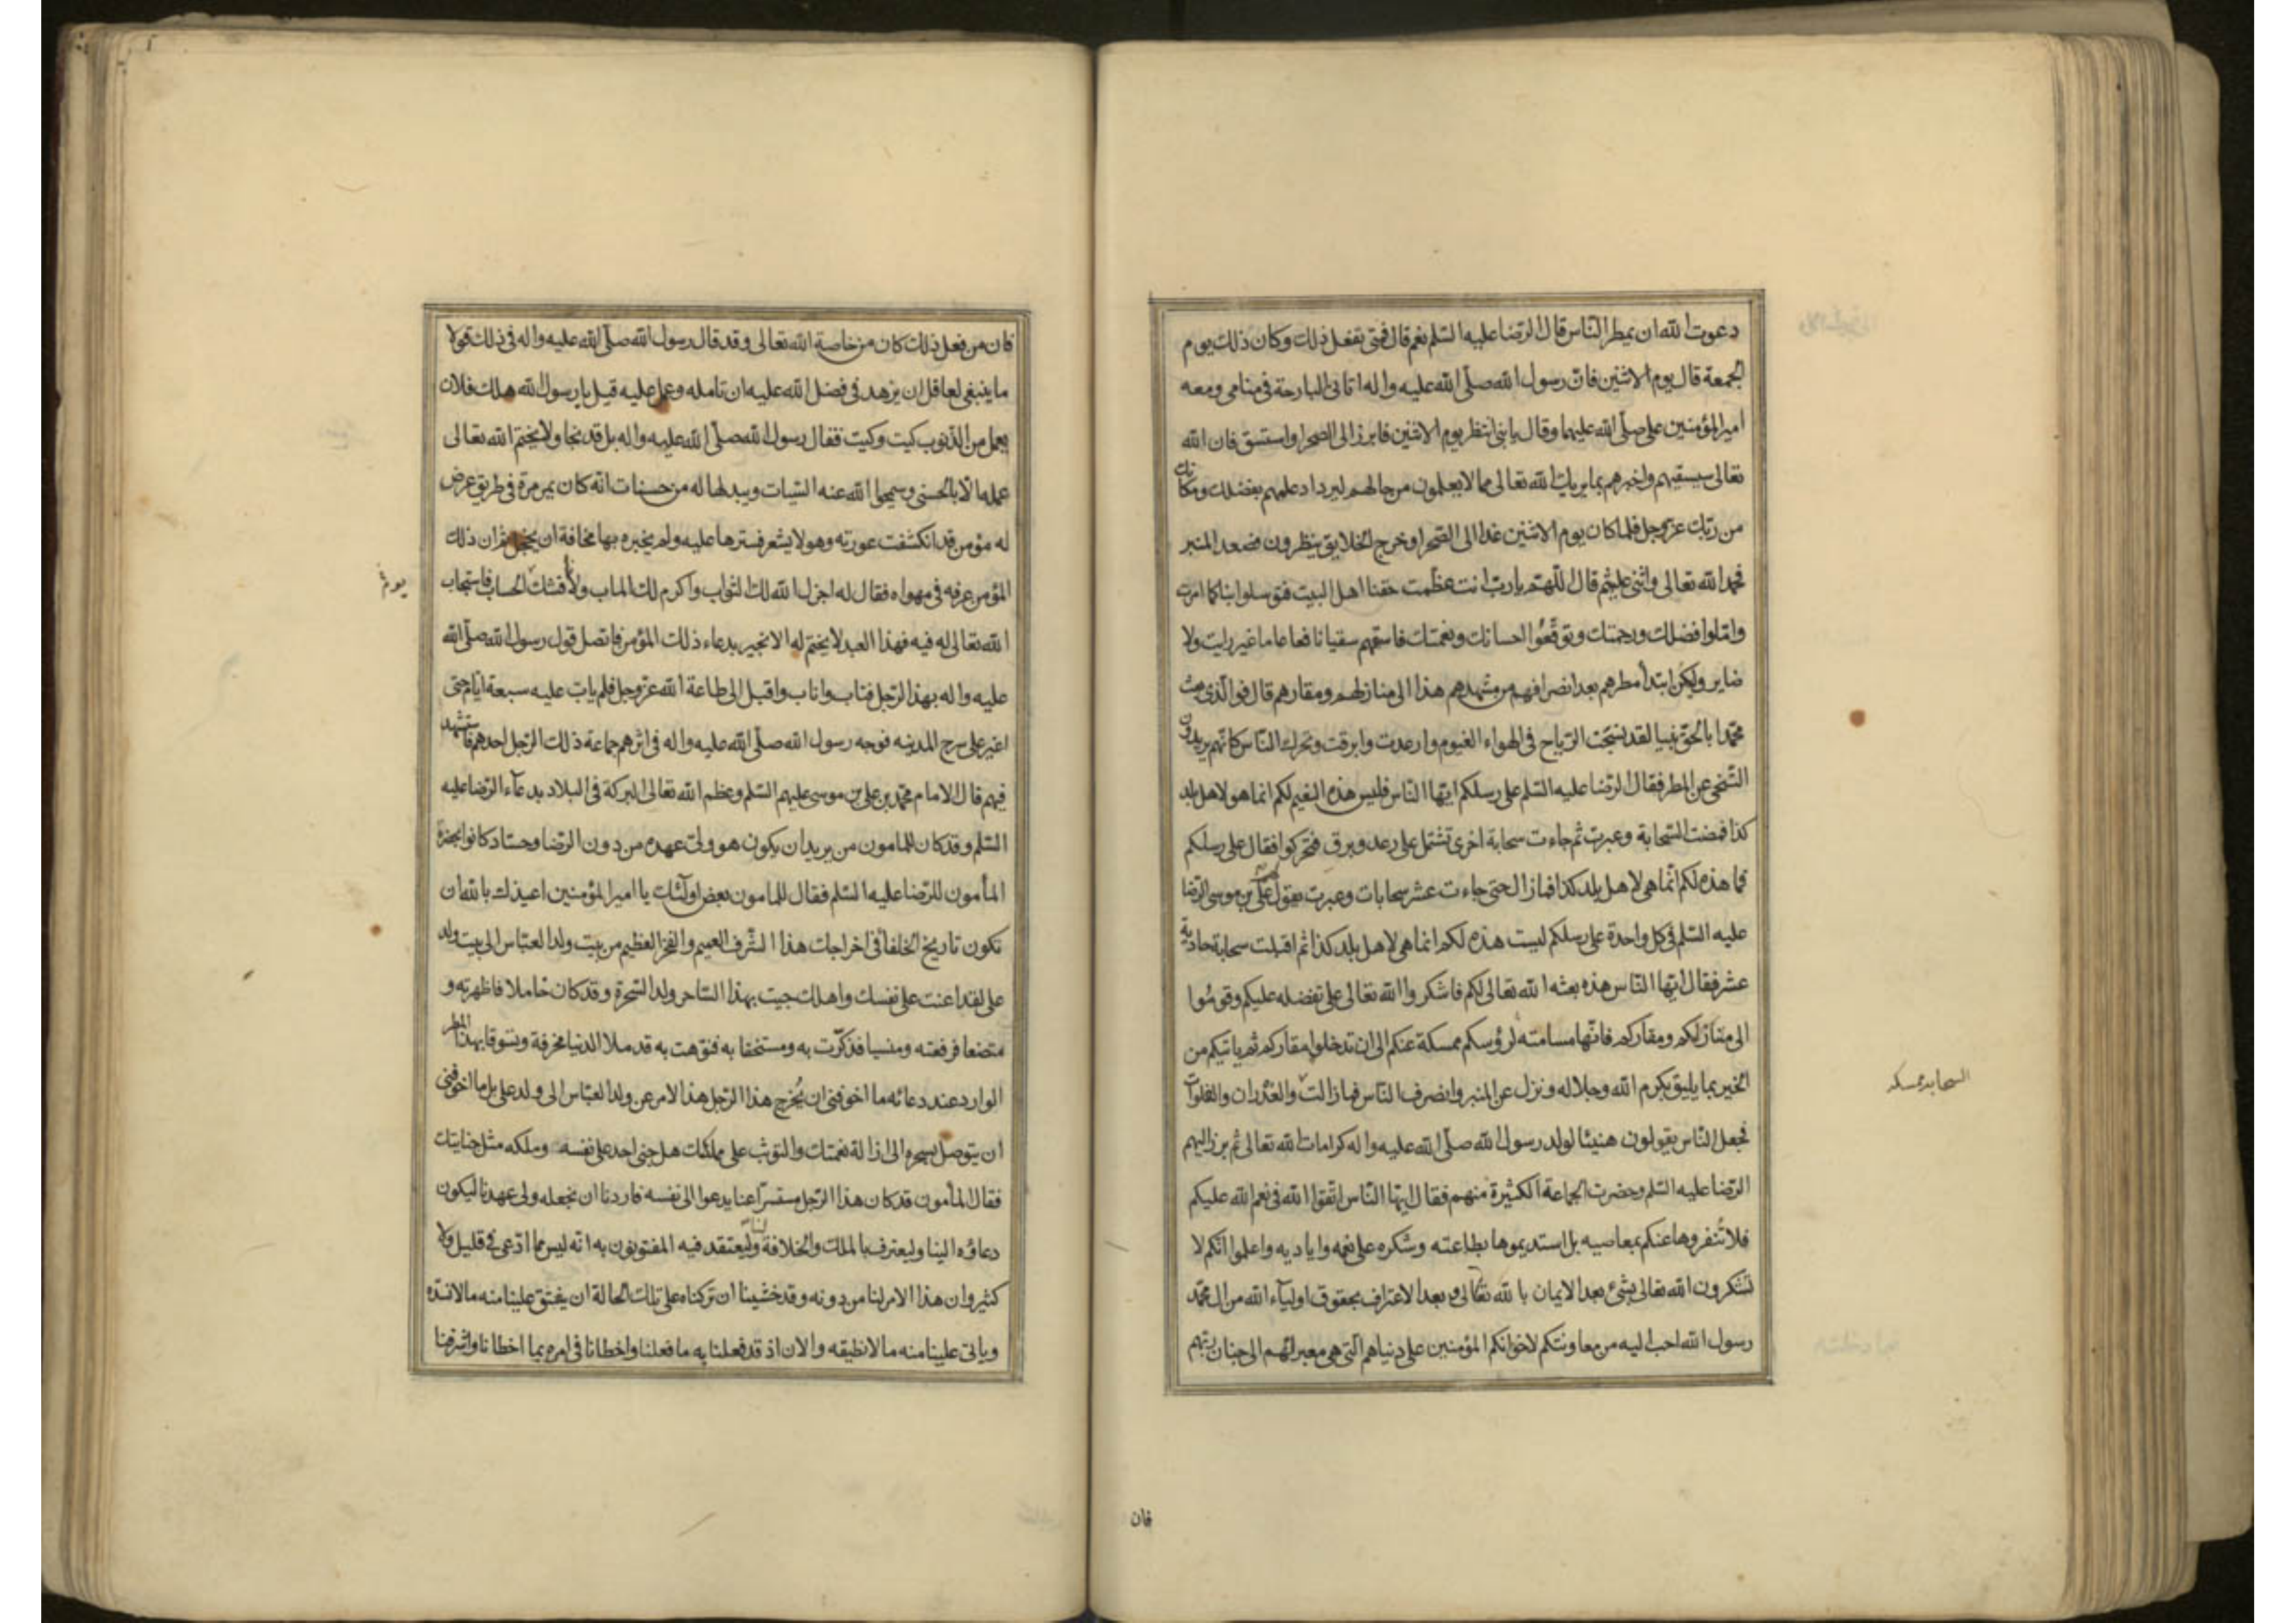 دعوت الله ان يمطر الناس قال الرضا عليه السلم نعم قال فمتى تفعل ذلك وكان ذلك يوم
الجمعة قال يوم الاثنين فان رسول الله صلى الله عليه واله اتانى البارحة فى منامى ومعه
امير المؤمنين على صلى الله عليهما وقال يا بنى انتظر يوم الاثنين فابرز الى الصحرا واستسق فان الله
تعالى سيسقيهم واخبرهم بما يريك الله تعالى مما لا يعلمون من حالهم ليزداد علمهم بفضلك ومكانك
من ربك عز وجل فلما كان يوم الاثنين غدا الى الصحرا وخرج الخلايق ينظرون فصعد المنبر
فحمد الله تعالى واثنى عليه ثم قال اللهم يا رب انت عظمت حقنا اهل البيت فتوسلوا بنا كما امرت
واملوا فضلك ورحمتك وتوقعوا احسانك ونعمتك فاسقهم سقيا نافعا عاما غير رايث ولا
ضاير وليكن ابتدأ مطرهم بعد انصرافهم من مشهدهم هذا الى منازلهم ومقارهم قال فوالذى بعث
محمدا بالحق نبيا لقد نسجت الرياح فى الهواء الغيوم وارعدت وابرقت وتحرك الناس كانهم يريدون
التنحى عن المطر فقال الرضا عليه السلم على رسلكم ايها الناس فليس هذه الغيم لكم انما هو لاهل بلد
كذا فمضت السحابة وعبرت ثم جاءت سحابة اخرى تشتمل على رعد وبرق فتحركوا فقال على رسلكم
فما هذه لكم انما هى لاهل بلد كذا فما زال حتى جاءت عشر سحابات وعبرت يقول على بن موسى الرضا
عليه السلم فى كل واحدة على رسلكم ليست هذه لكم انما هى لاهل بلد كذا ثم اقبلت سحابة حادية
عشر فقال ايها الناس هذه بعثه الله تعالى لكم فاشكروا الله تعالى على تفضله عليكم وقوموا
الى منازلكم ومقاركم فانها مسامته لرؤسكم ممسكة عنكم الى ان تدخلوا مقاركم ثم ياتيكم من
السحابه ممسكه
الخير بما يليق بكرم الله وجلاله ونزل عن المنبر وانصرف الناس فما زالت والغدران والفلوات
فجعل الناس يقولون هنيئا لولد رسول الله صلى الله عليه واله كرامات الله تعالى ثم برز اليهم
الرضا عليه السلم وحضرت الجماعة الكثيرة منهم فقال ايها الناس اتقوا الله فى نعم الله عليكم
فلا تنفروها عنكم بمعاصيه بل استديموها بطاعته وشكره على نعمه واياديه واعلموا انكم لا
تشكرون الله تعالى بشئ بعد الايمان بالله تعالى وبعد الاعتراف بحقوق اولياء الله من ال محمد
رسول الله احب اليه من معاونتكم لاخوانكم المؤمنين على دنياهم التى هى معبر لهم الى جنان ربهم
فان
فان من فعل ذلك كان من خاصة الله تعالى وقد قال رسول الله صلى الله عليه واله فى ذلك قولا
ما ينبغى لعاقل ان يزهد فى فضل الله عليه ان تامله وعمل عليه قيل يا رسول الله هلك فلان
يعمل من الذنوب كيت وكيت فقال رسول الله صلى الله عليه واله بل قد نجا ولا يختم الله تعالى
عمله الا بالحسنى وسيمحوا الله عنه السيات ويبدلها له من حسنات انه كان يمر مرة فى طريق عرض
له مؤمن قد انكشفت عورته وهو لا يشعر فسترها عليه ولم يخبره بها مخافة ان يخجل ثم ان ذلك
المؤمن عرفه فى مهواه فقال له اجزل الله لك الثواب واكرم لك الماب ولا ناقشك الحساب فاستجاب
الله تعالى له فيه فهذا العبد لا يختم له الا بخير بدعاء ذلك المؤمن فاتصل قول رسول الله صلى الله
عليه واله بهذا الرجل فتاب واناب واقبل الى طاعة الله عز وجل فلم يات عليه سبعة ايام حتى
اغير على سرح المدينه فوجه رسول الله صلى الله عليه واله فى اثرهم جماعة ذلك الرجل احدهم فاستشهد
فيهم قال الامام محمد بن على بن موسى عليهم السلم وعظم الله تعالى البركة فى البلاد بدعآء الرضا عليه
السلم وقد كان للمامون من يريد ان يكون هو ولى عهده من دون الرضا وحساد كانوا بحضرة
المأمون للرضا عليه السلم فقال للمامون بعض اولئك يا امير المؤمنين اعيذك بالله ان
تكون تاريخ الخلفا فى اخراجك هذا الشرف العميم والفخر العظيم من بيت ولد العباس الى بيت ولد
على لقد اعنت على نفسك واهلك جيت بهذا الساحر ولد السحرة وقد كان خاملا فاظهرته و
متضعا فرفعته ومنسيا فذكرت به ومستخفا به فنوهت به قد ملا الدنيا مخرفة وتشوقا بهذا المطر
الوارد عند دعائه ما اخوفنى ان يخرج هذا الرجل هذا الامر عن ولد العباس الى ولد على بل ما اخوفنى
ان يتوصل بسحره الى ازالة نعمتك والتوثب على مملكتك هل جنى احد على نفسه وملكه مثل جنايتك
فقال المأمون قد كان هذا الرجل مستترا عنا يدعوا الى نفسه فاردنا ان نجعله ولى عهدنا ليكون
دعاؤه الينا وليعترف بالملك والخلافة لنا وليعتقد فيه المفتونون به انه ليس مما ادعى فى قليل ولا
كثير وان هذا الامر لنا من دونه وقد خشينا ان تركناه على تلك الحالة ان يفتق علينا منه ما لا نسده
وياتى علينا منه ما لا نطيقه والان اذ قد فعلنا به ما فعلنا واخطانا فى امره بما اخطانا واشرفنا